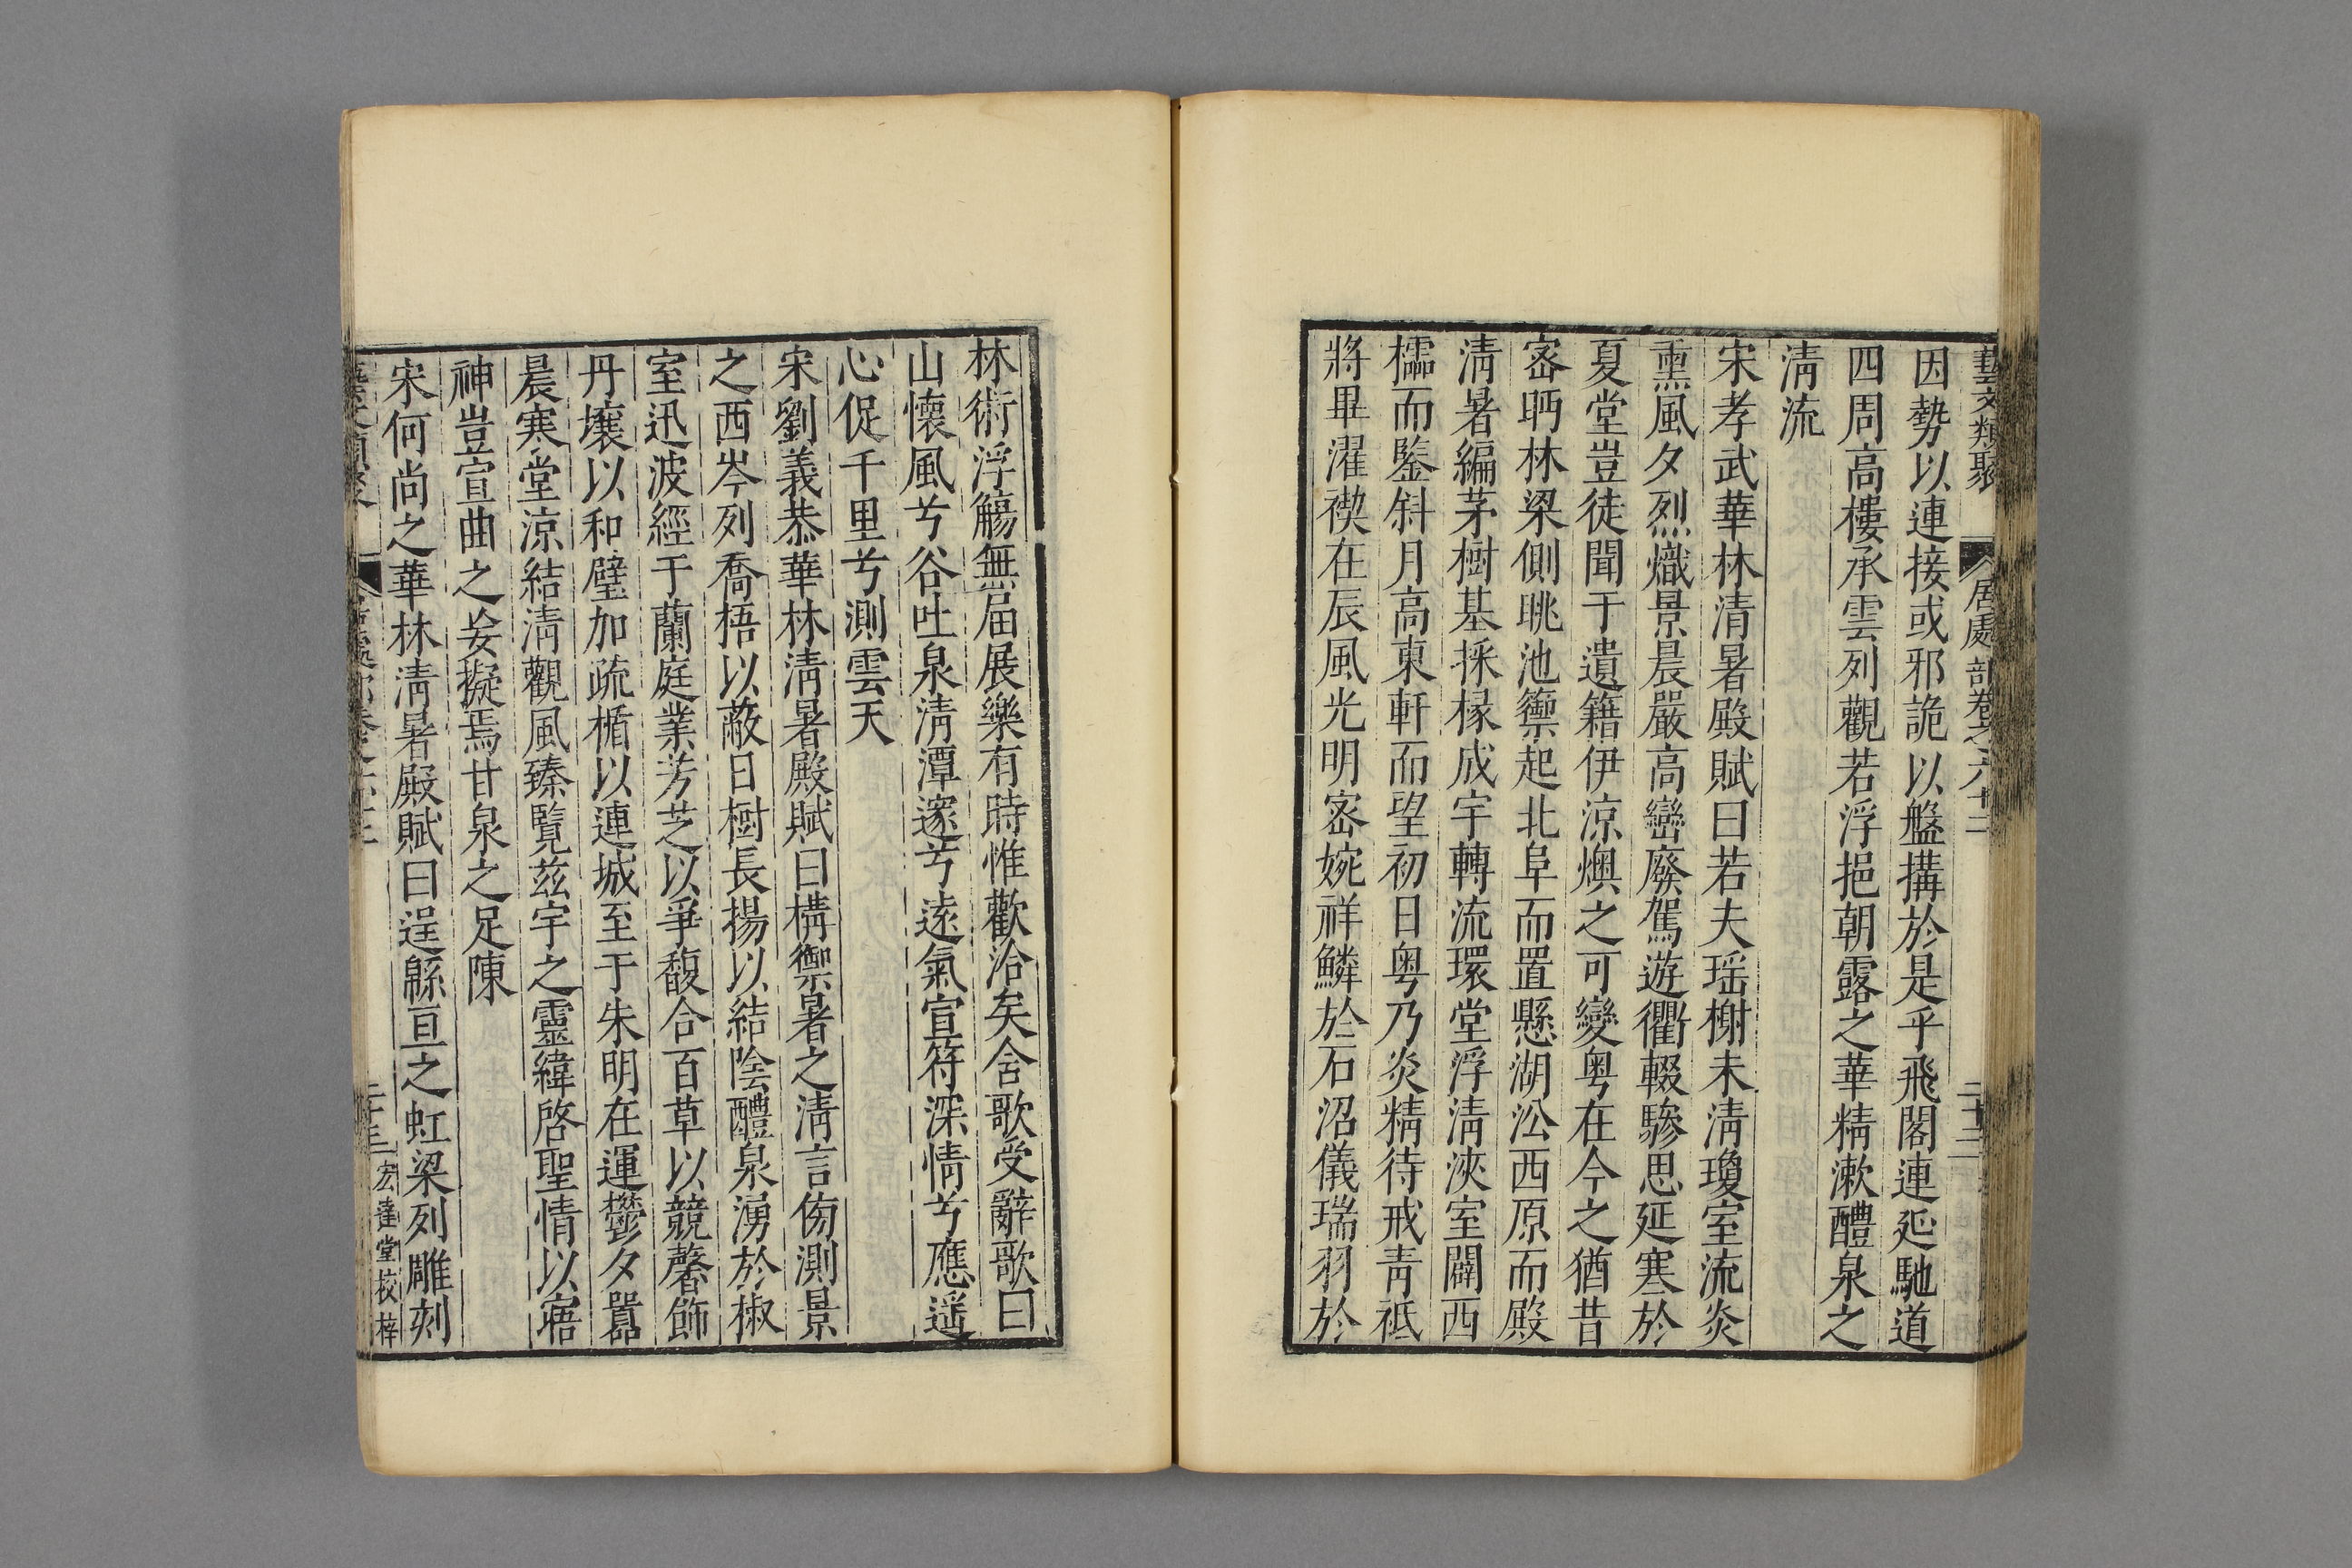 藝文類聚 居處部卷之六十二 二十二
因勢以連接或邪詭以盤搆於是乎飛閣連延馳道
四周高樓承雲列觀若浮挹朝露之華精漱醴泉之
淸流
宋孝武華林清暑殿賦曰若夫瑶榭未淸瓊室流炎
熏風夕烈熾景晨嚴高巒廢駕遊衢輟驂思延寒於
夏堂豈徒聞于遺籍伊涼燠之可變粤在今之猶昔
宻眄林梁側眺池籞起北阜而置懸湖㳂西原而殿
淸暑編茅樹基採椽成宇轉流環堂浮淸浹室闢西
櫺而鑒斜月高東軒而望初日粤乃炎精待戒靑祗
將畢濯禊在辰風光明宻婉祥鱗於石沼儀瑞羽於
林術浮觴無届展樂有時惟歡洽矣舍歌受辭歌曰
山懷風兮谷吐泉淸潭邃兮遠氣宣符深情兮應遥
心促千里兮測雲天
宋劉義恭華林淸暑殿賦曰構禦暑之淸言傍測景
之西岑列喬梧以蔽日樹長揚以結陰醴泉湧於椒
室迅波經于蘭庭業芳芝以爭馥合百草以競馨飾
丹壤以和壁加疏楯以連城至于朱明在運鬱夕嚣
晨寒堂涼結淸觀風臻覽兹宇之靈緯啓聖情以寤
神豈宣曲之妄擬焉甘泉之足陳
宋何尚之華林淸暑殿賦曰逞緜亘之虹梁列雕刻
二十三 宏達堂校梓